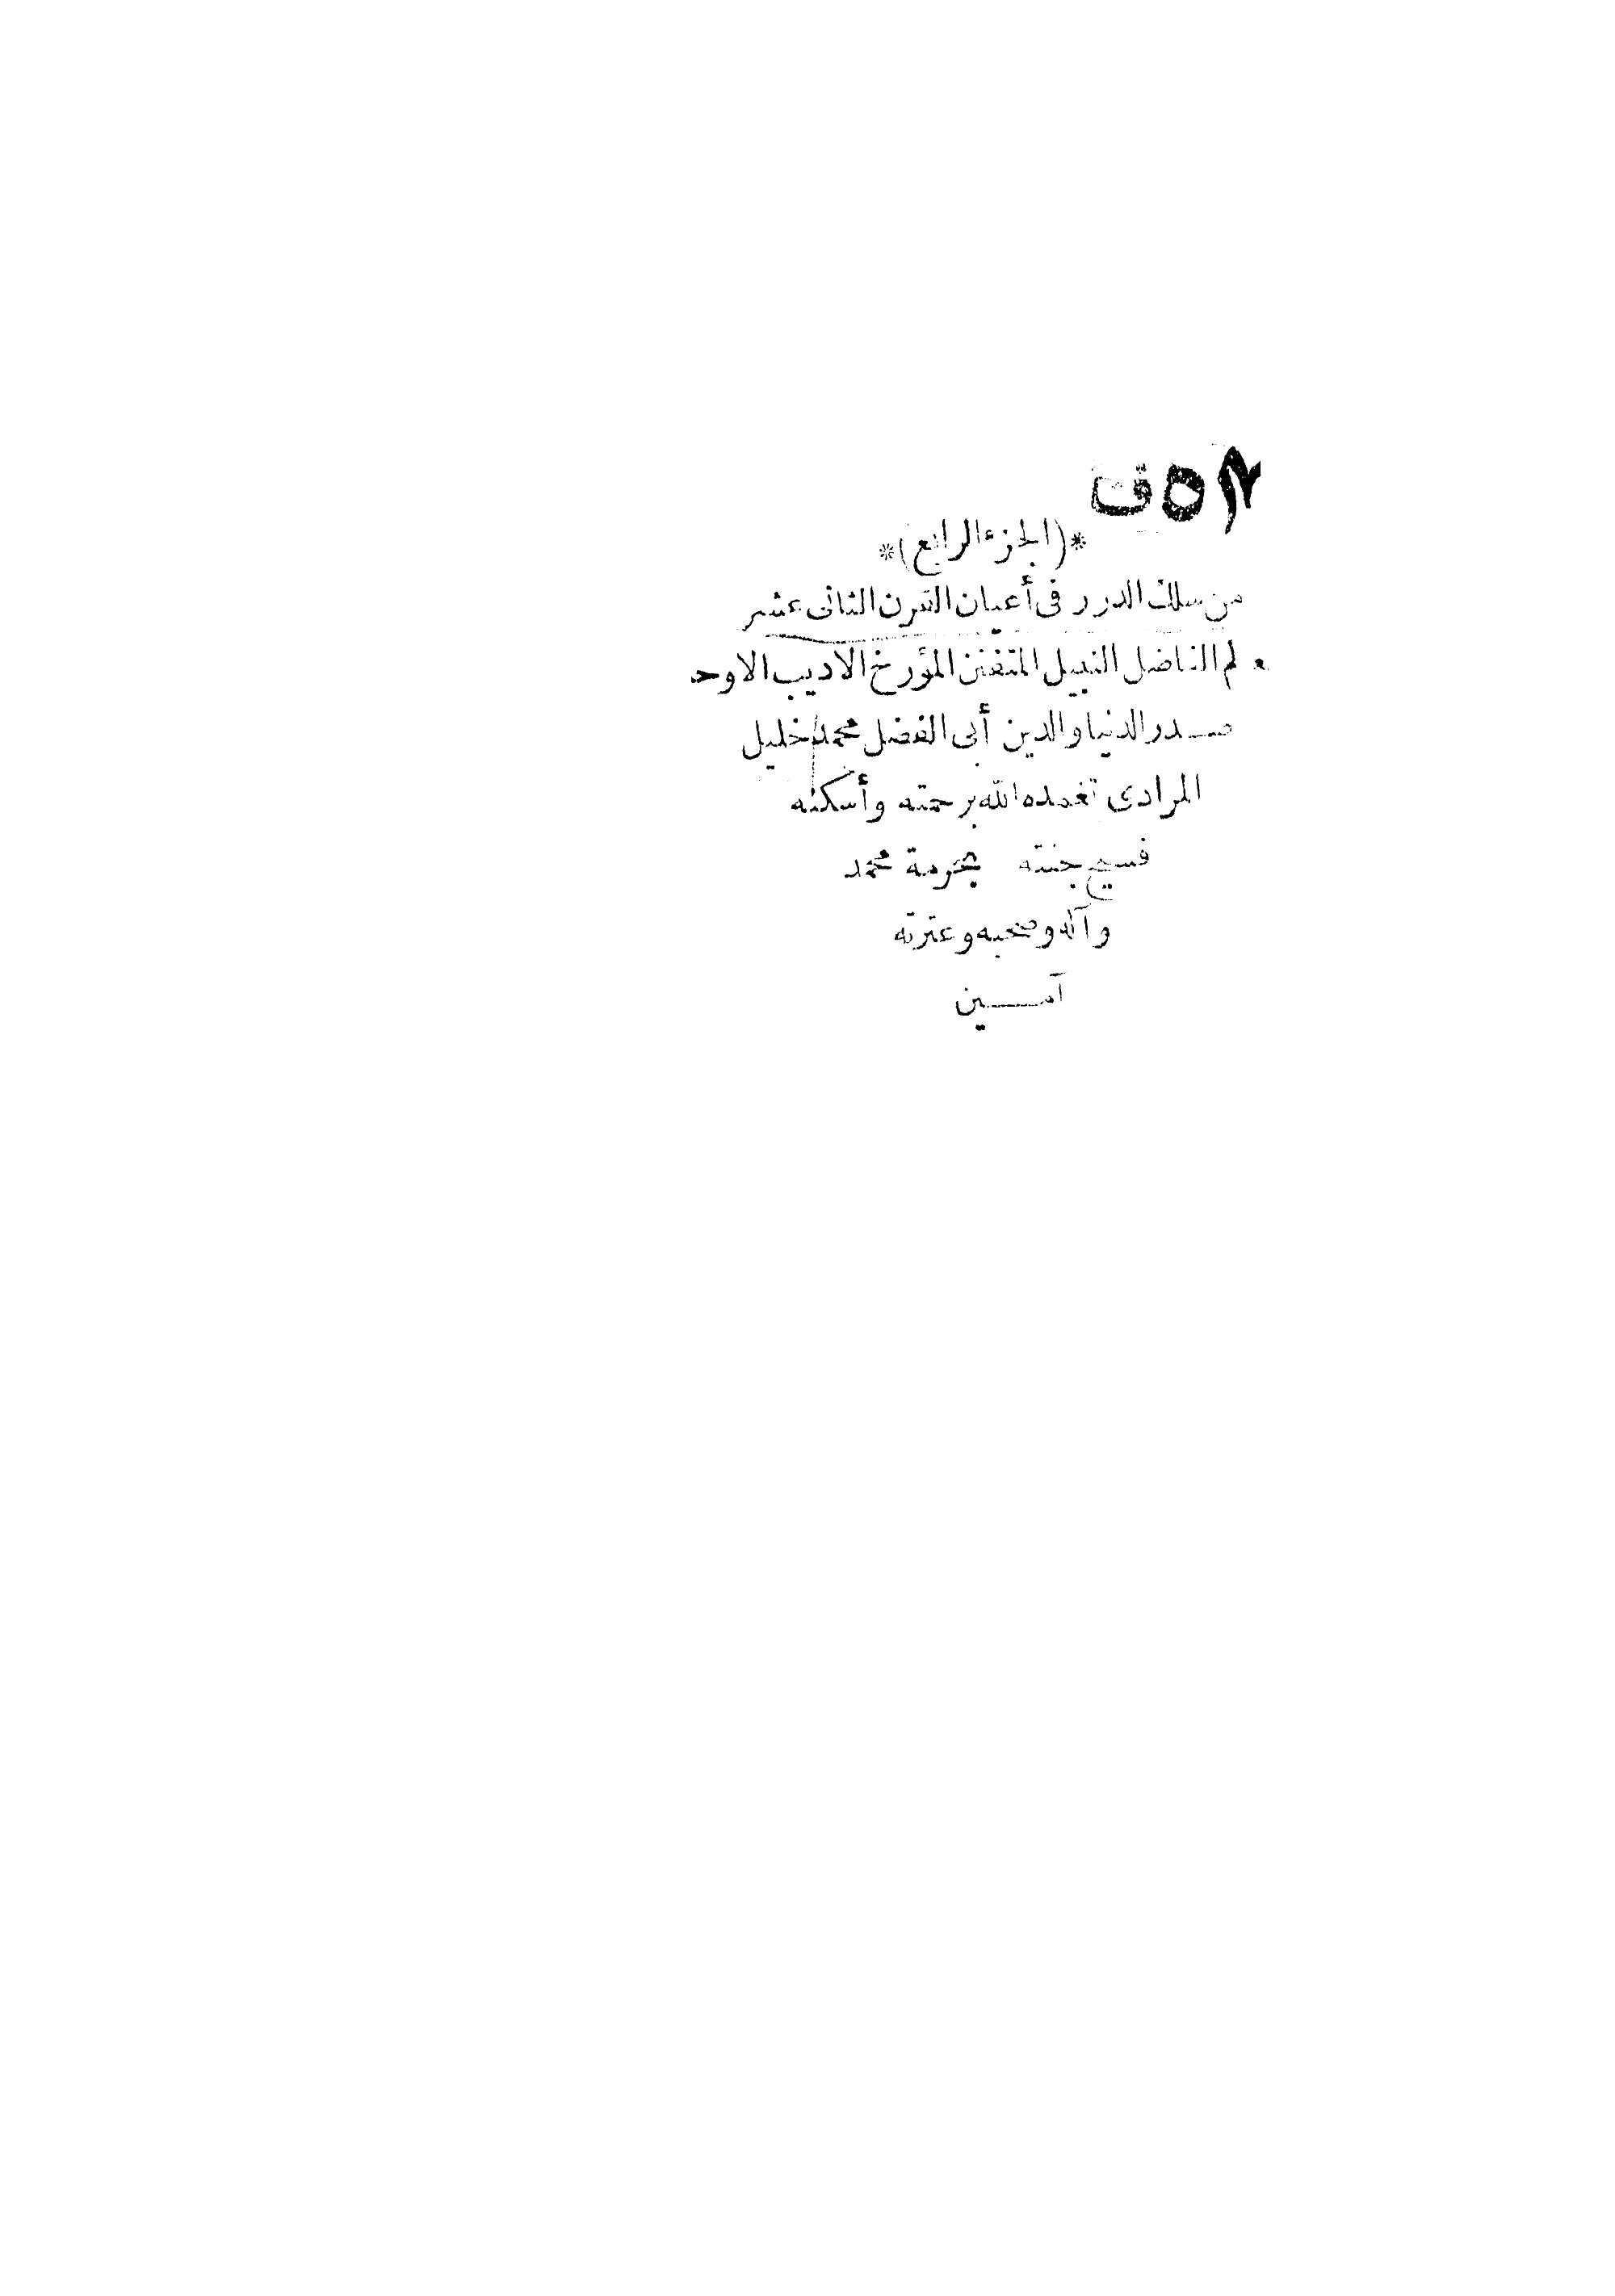 *(الجزء الرابع)*
من سلك الدرر فى أعيان القرن الثانى عشر
الفاضل النبيل المتفنن المؤرخ الاديب الاوحد
صدر الدنيا والدين أبى الفضل محمد خليل
المرادى تغمده الله برحمته وأسكنه
فسيح جنته بحرمة محمد
وآله وصحبه وعترته
آمــين